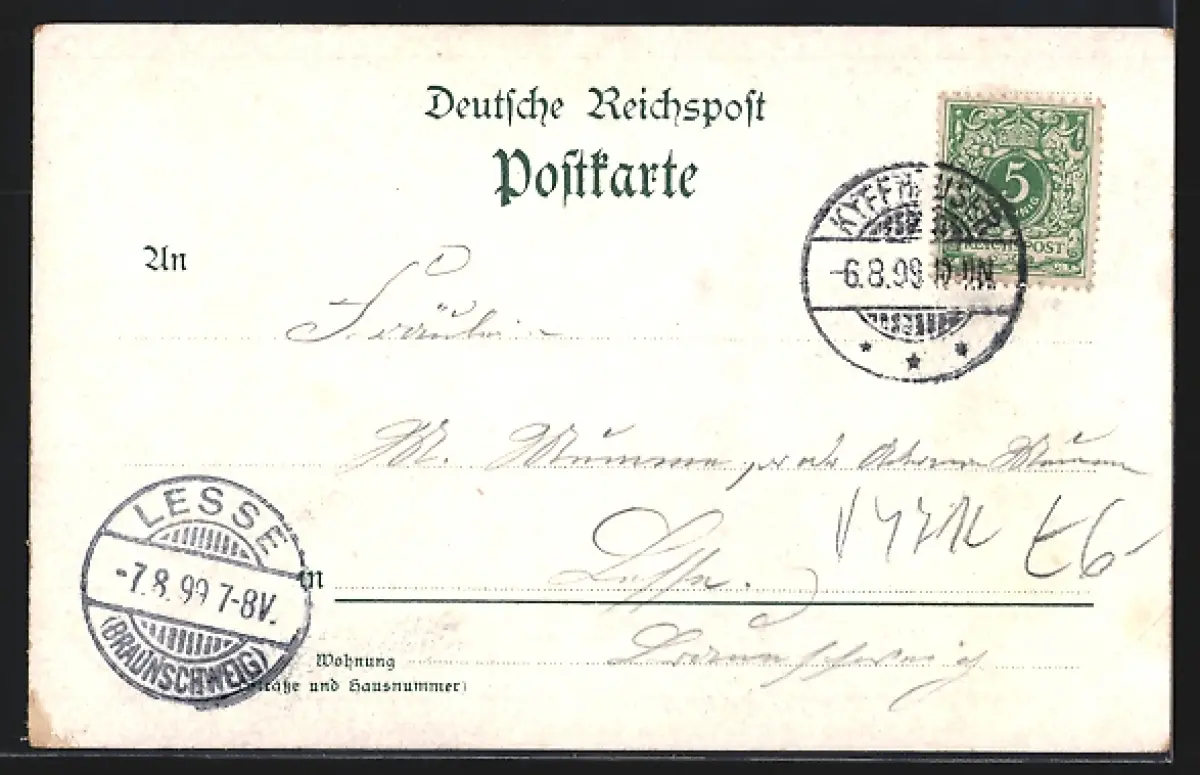 Deutsche Reichspost
Postkarte
5
REICHSPOST
KYFFHÄUSER
-6.8.99
An
Fräulein
M. Mumme
Lesse.
in
LESSE
-7.8.99 7-8V.
(BRAUNSCHWEIG)
Wohnung
Braunschweig
(Straße und Hausnummer)